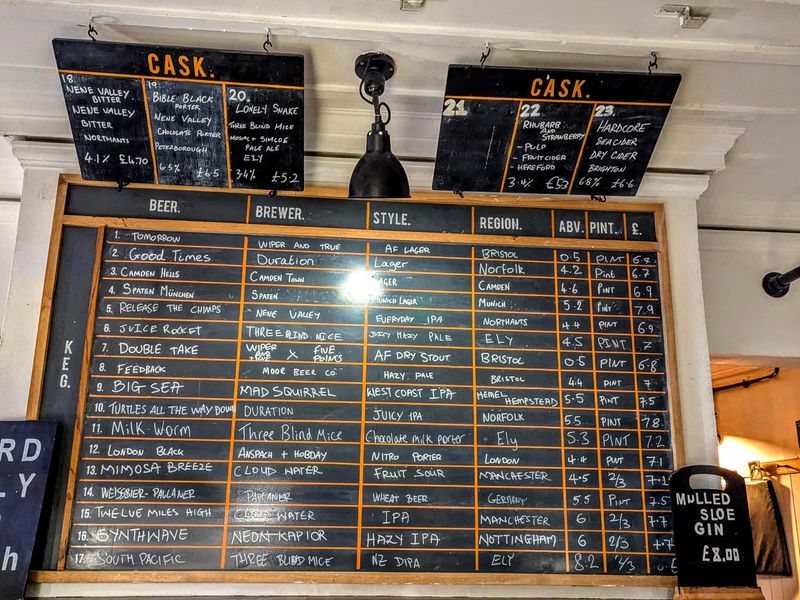 CASK.
18.
NENE VALLEY
BITTER
NENE VALLEY
BITTER
NORTHANTS
4.1% £4.70
19.
BIBLE BLACK
PORTER
NENE VALLEY
CHOCOLATE PORTER
PETERBOROUGH
6.5% £6.5
20.
LONELY SNAKE
THREE BLIND MICE
MOSAIC + SIMCOE
PALE ALE
ELY
3.4% £5.2
CASK.
21.
22.
RHUBARB
AND
STRAWBERRY
- PULP
- FRUIT CIDER
- HEREFORD
3.4% £5.3
23.
HARDCORE
SEACIDER
DRY CIDER
BRIGHTON
6.8% £6.6
BEER. BREWER. STYLE. REGION. ABV. PINT. £.
KEG.
1. TOMORROW WIPER AND TRUE AF LAGER BRISTOL 0.5 PINT
2. Good Times Duration Lager Norfolk 4.2 Pint 6.7
3. CAMDEN HELLS CAMDEN TOWN LAGER CAMDEN 4.6 PINT 6.9
4. SPATEN MÜNCHEN SPATEN MUNICH LAGER MUNICH 5.2 PINT 7.9
5. RELEASE THE CHIMPS NENE VALLEY EVERYDAY IPA NORTHANTS 4.4 PINT 6.9
6. JUICE ROCKET THREE BLIND MICE JUICY HAZY PALE ELY 4.5 PINT 7
7. DOUBLE TAKE WIPER AND TRUE X FIVE POINTS AF DRY STOUT BRISTOL 0.5 PINT 6.8
8. FEEDBACK MOOR BEER CO. HAZY PALE BRISTOL 4.4 PINT 7
9. BIG SEA MAD SQUIRREL WEST COAST IPA HEMEL HEMPSTEAD 5.5 PINT 7.5
10. TURTLES ALL THE WAY DOWN DURATION JUICY IPA NORFOLK 5.5 PINT 7.8
11. MILK-WORM Three Blind Mice Chocolate milk porter Ely 5.3 PINT 7.2
12. LONDON BLACK ANSPACH + HOBDAY NITRO PORTER LONDON 4.4 PINT 7.1
13. MIMOSA BREEZE CLOUD WATER FRUIT SOUR MANCHESTER 4.5 2/3 7.1
14. WEISSBIER - PAULANER PAULANER WHEAT BEER GERMANY 5.5 PINT 7.5
15. TWELVE MILES HIGH CLOUD WATER IPA MANCHESTER 6 2/3 7.7
16. SYNTHWAVE NEON RAPTOR HAZY IPA NOTTINGHAM 6 2/3 7.7
17. SOUTH PACIFIC THREE BLIND MICE NZ DIPA ELY 8.2
MULLED
SLOE
GIN
£8.00
RD
LY
h